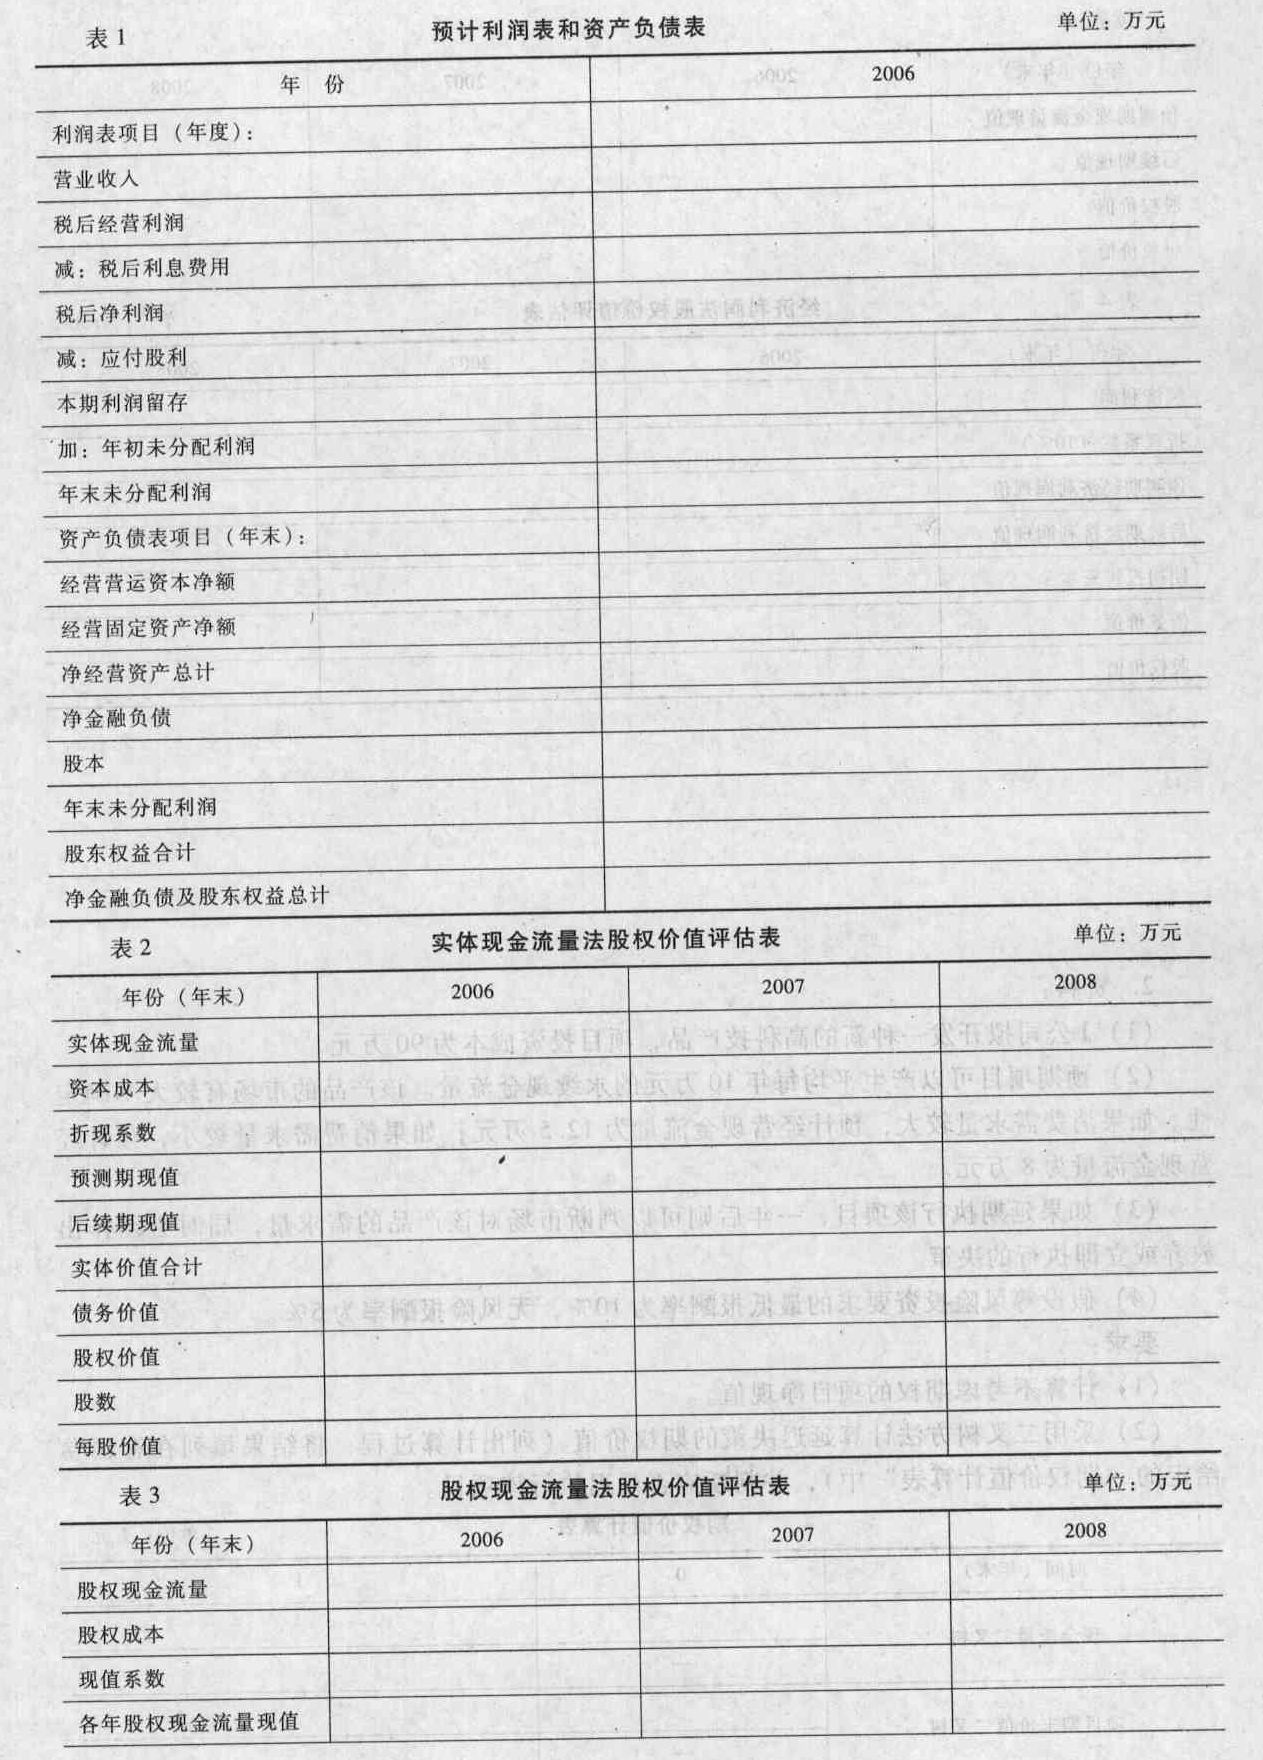 表 1 预计利润表和资产负债表 单位：万元
年 份 2006
利润表项目（年度）：
营业收入
税后经营利润
减：税后利息费用
税后净利润
减：应付股利
本期利润留存
加：年初未分配利润
年末未分配利润
资产负债表项目（年末）：
经营营运资本净额
经营固定资产净额
净经营资产总计
净金融负债
股本
年末未分配利润
股东权益合计
净金融负债及股东权益总计
表 2 实体现金流量法股权价值评估表 单位：万元
年份（年末） 2006 2007 2008
实体现金流量
资本成本
折现系数
预测期现值
后续期现值
实体价值合计
债务价值
股权价值
股数
每股价值
表 3 股权现金流量法股权价值评估表 单位：万元
年份（年末） 2006 2007 2008
股权现金流量
股权成本
现值系数
各年股权现金流量现值